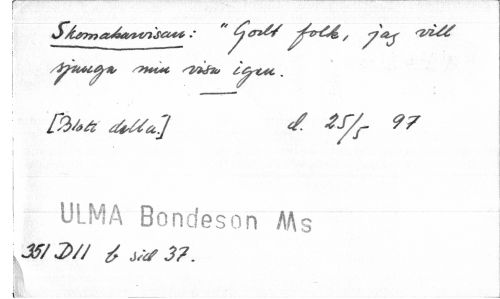 Skomakarvisan: "Godt folk, jag vill
sjunga min visa igen.
[Blott detta.] d. 25/5 97
ULMA Bondeson Ms
351 D11 b sid 37.